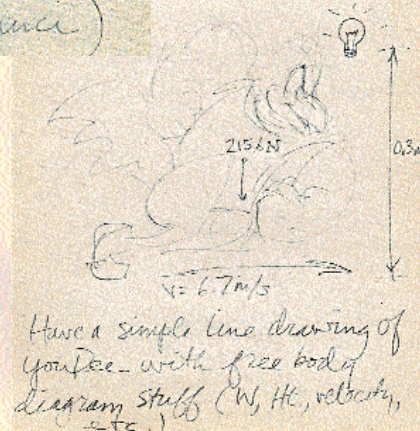 215 kN
0.3
v = 6.7 m/s
Have a simple line drawing of
with free body
diagram stuff (W, Ht, velocity,
etc.)